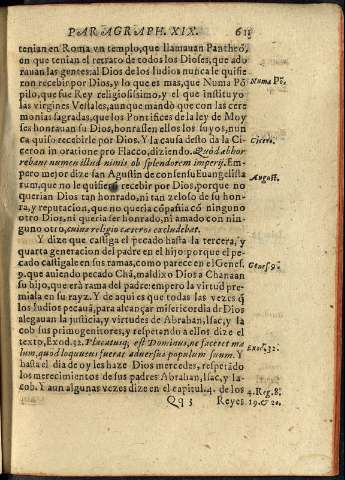 PARAGRAPH. XIX.
tenian en Roma vn templo, que llamauan Pantheõ,
en que tenian el retrato de todos los Dioses, que ado
rauan las gentes: al Dios de los Iudios nunca le quisie
ron recebir por Dios, y lo que es mas, que Numa Põ
pilo, que fue Rey religiosissimo, y el que instituyo
las virgines Vestales, aunque mandò que con las cere
monias sagradas, que los Pontifices de la ley de Moy
ses honrauan su Dios, honrassen ellos los suyos, nun
ca quiso recebirle por Dios. Y la causa desto da la Ci
ceron in oratione pro Flacco, diziendo. Quòd abhor
rebant numen illud nimis ob splendorem imperij. Em
pero mejor dize san Agustin de consensu Euangelista
rum, que no le quisierõ recebir por Dios, porque no
querian Dios tan honrado, ni tan zeloso de su hon-
ra, y reputacion, que no queria cõpañia cõ ninguno
otro Dios, ni queria ser honrado, ni amado con nin-
guno otro, cuius religio cæteros excludebat.
Y dize que castiga el pecado hasta la tercera, y
quarta generacion del padre en el hijo: porque el pe
cado castigale en sus ramas, como parece en el Genes.
9. que auiendo pecado Chã, maldixo Dios a Chanaan
su hijo, que erà rama del padre: empero la virtud pre-
miala en su rayz. Y de aqui es que todas las vezes q̃
los Iudios pecauã, para alcançar misericordia dr Dios
alegauan la justicia, y virtudes de Abrahan, Isac, y Ia
cob sus primogenitores, y respetando a ellos dize el
texto, Exod. 32. Placatusq; est Dominus, ne faceret ma
lum, quod loquutus fuerat aduersus populum suum. Y
hasta el dia de oy les haze Dios mercedes, respetãdo
los merecimientos de sus padres Abrahan, Isac, y Ia-
cob. Y aun algunas vezes dize en el capitul. 4. de los
Qq 3 Reyes
Numa Põ.
Cicero.
August.
Genes. 9.
Exod. 32.
4. Reg. 8.
19. & 20.